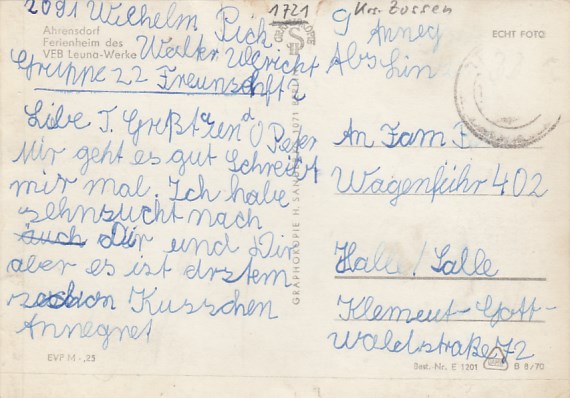 2091 Wilhelm Pick
1721
Krs. Zossen
Ahrensdorf
Ferienheim des
VEB Leuna-Werke
Gruppe 22 Freunschft
Anneg
ECHT FOTO
Mir geht es gut Schreibt
mir mal. Ich habe
zehnzucht nach
auch Dir und Dir
aber es ist drztem
schon Kusschen
Annegret
EVP M -,25
GRAPHOKOPIE H. SAN
1971 BERLIN
An Fam
Wagenführ 402
Halle/Salle
Klement-Gott-
Waldstraße 72
Best.-Nr. E 1201
B 8/70